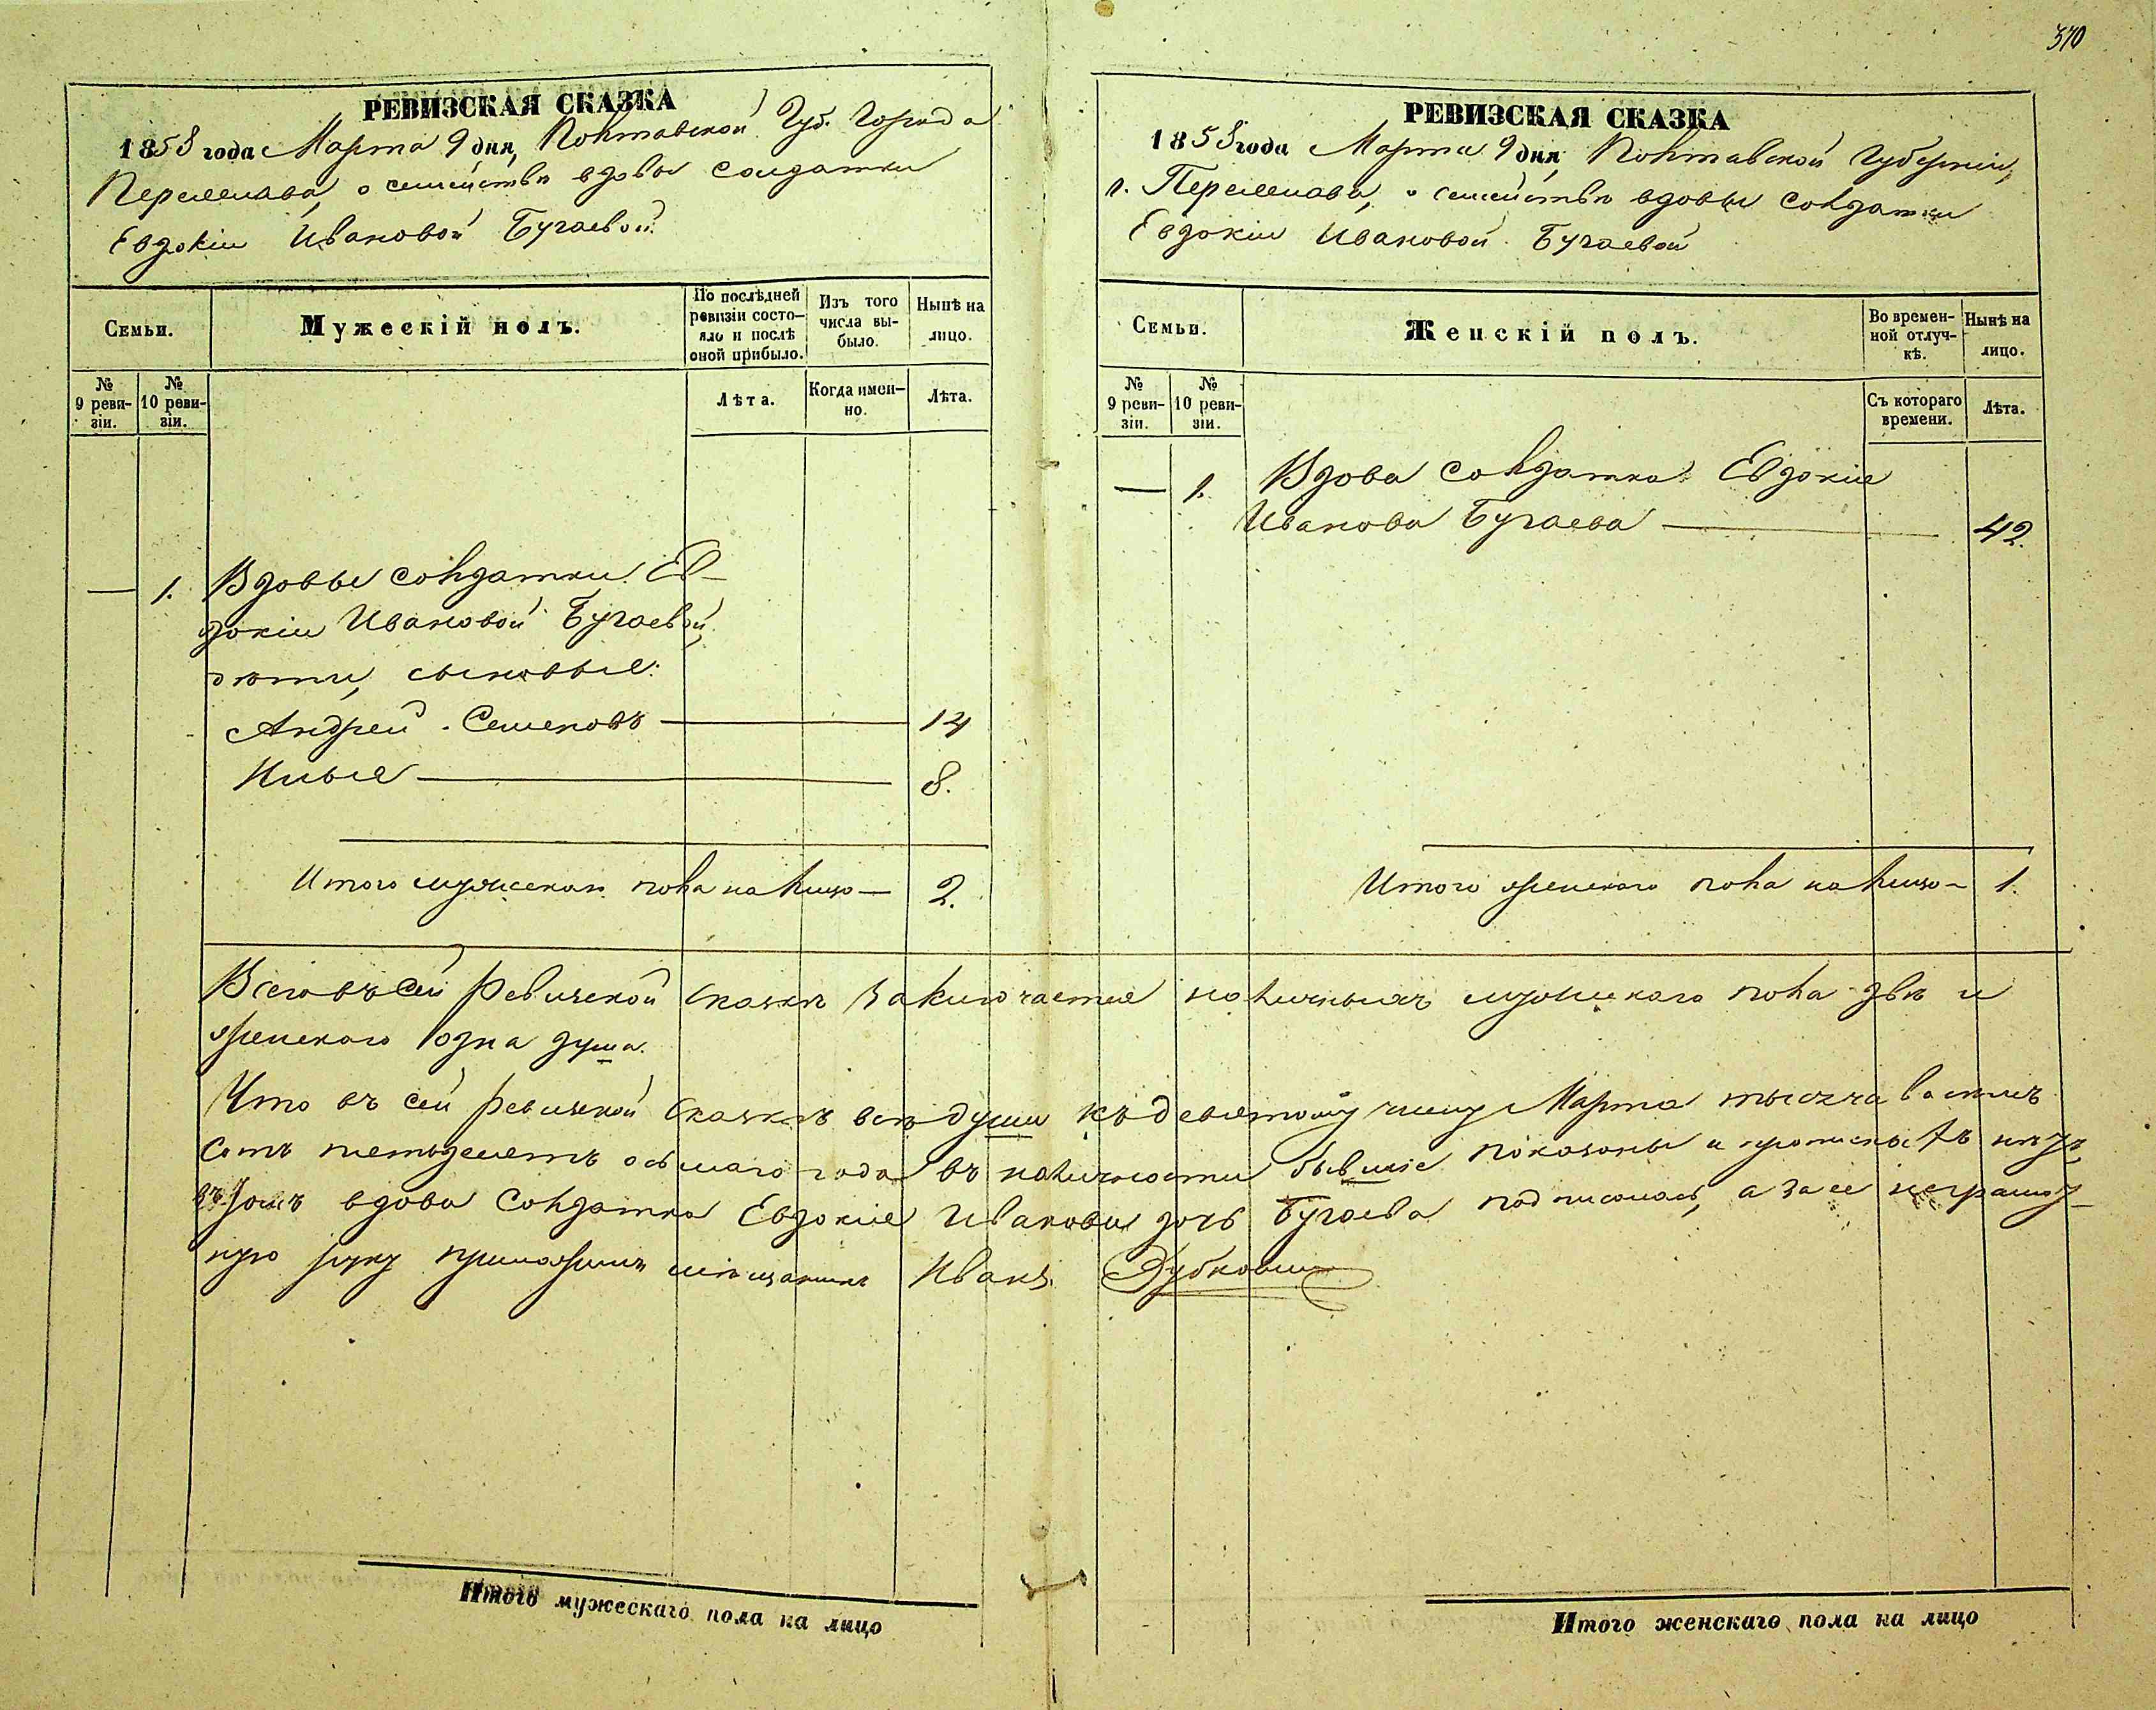 370
РЕВИЗСКАЯ СКАЗКА
1858 года Марта 9 дня, Полтавской Губ. Города
Переяслава, о семействѣ вдовы солдатки
Евдокіи Ивановой Бугаевой.
Семьи.
Мужескій полъ.
По послѣдней ревизіи состояло и послѣ оной прибыло.
Изъ того числа выбыло.
Нынѣ на лицо.
№ 9 ревизіи.
№ 10 ревизіи.
Лѣта.
Когда именно.
Лѣта.
— 1. Вдовы солдатки Ев-
докіи Ивановой Бугаевой,
дѣти, сыновья:
Андрей Семеновъ — 14
Илья — 8.
Итого мужескаго пола на лицо — 2.
РЕВИЗСКАЯ СКАЗКА
1858 года Марта 9 дня, Полтавской Губерніи,
г. Переяслава, о семействѣ вдовы солдатки
Евдокіи Ивановой Бугаевой
Семьи.
Женскій полъ.
Во временной отлучкѣ.
Нынѣ на лицо.
№ 9 ревизіи.
№ 10 ревизіи.
Съ котораго времени.
Лѣта.
— 1. Вдова солдатка Евдокія
Иванова Бугаева — 42.
Итого женскаго пола на лицо — 1.
Всего въ сей ревизской сказкѣ заключается наличныхъ мужескаго пола двѣ и
женскаго одна душа.
Что въ сей ревизской сказкѣ всѣ души къ девятому числу Марта тысяча восемь
сотъ пятьдесятъ осьмаго года въ наличности бывшіе показаны и
вдова Солдатка Евдокія Иванова дочь Бугаева подписалась, а за ее неграмот-
ную руку приложилъ мѣщанинъ Иванъ
Итого мужескаго пола на лицо
Итого женскаго пола на лицо